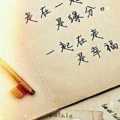 走在一起
是緣分。
一起在走
是幸福